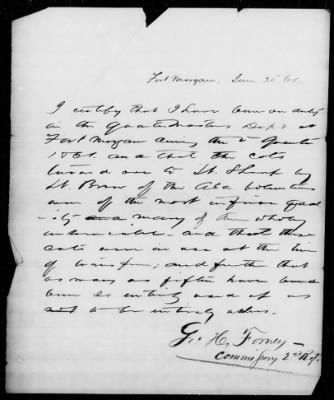 Fort Morgan, June 30th 61.
I certify that I have been on duty
in the Quartermasters Dept at
Fort Morgan during the 2d Quarter
1861. and that the cots
turned over to Lt Sharp by
Lt Brown of the Ala Volunteers
were of the most inferior quality
and many of them wholly
and that these
cots were in use at the time
of transfer; and further that
as many as fifteen have
been so entirely
as to be entirely useless.
Geo. H. Forney—
Commissary 2nd Regt.